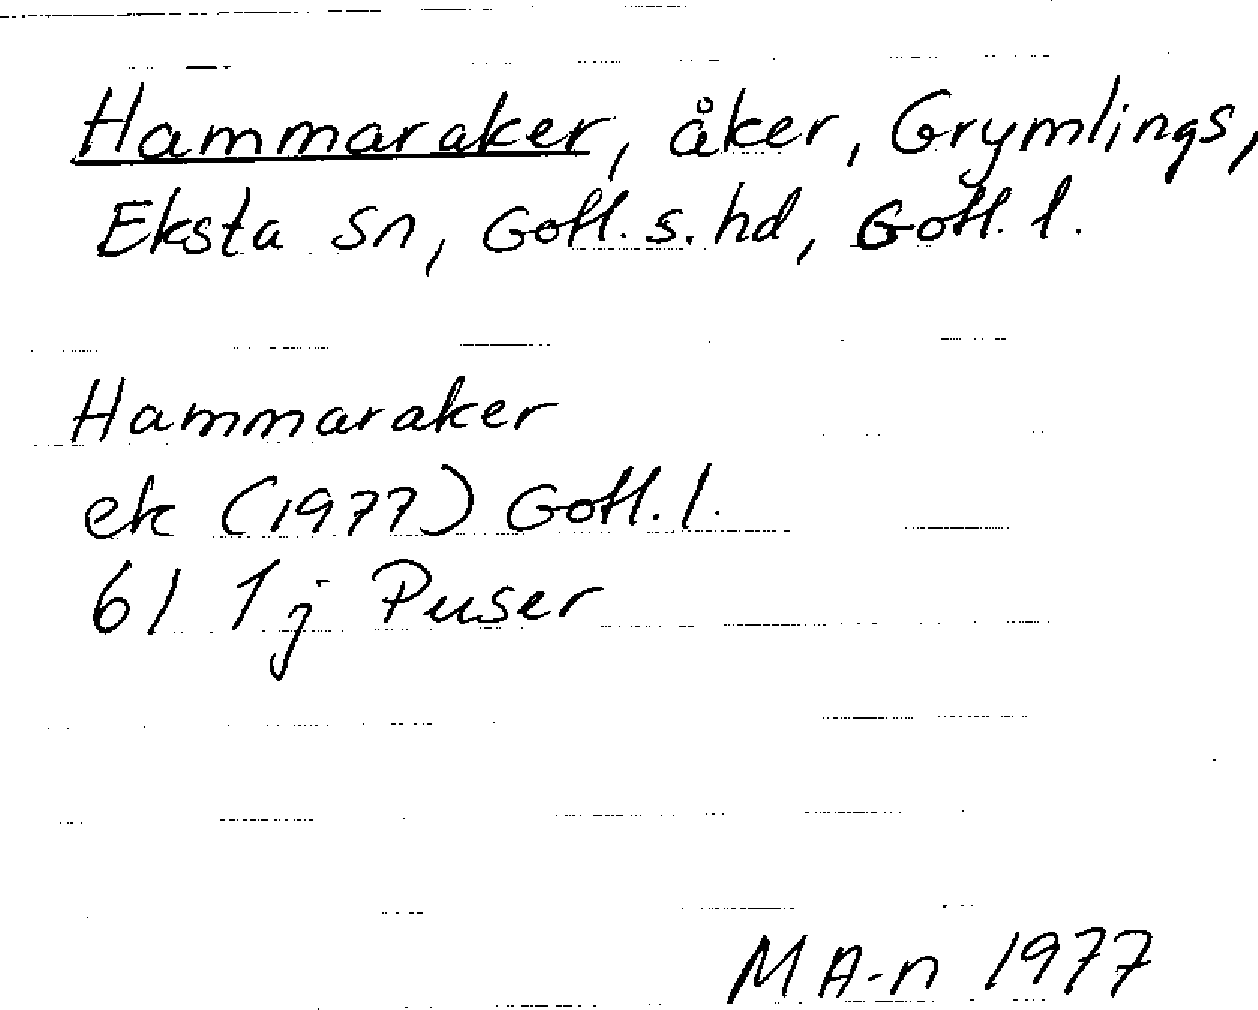 Hammaraker, åker, Grymlings,
Eksta sn, Gotl. s. hd, Gotl. l.
Hammaraker
ek (1977) Gotl. l.
6I 1j Puser
M A-n 1977